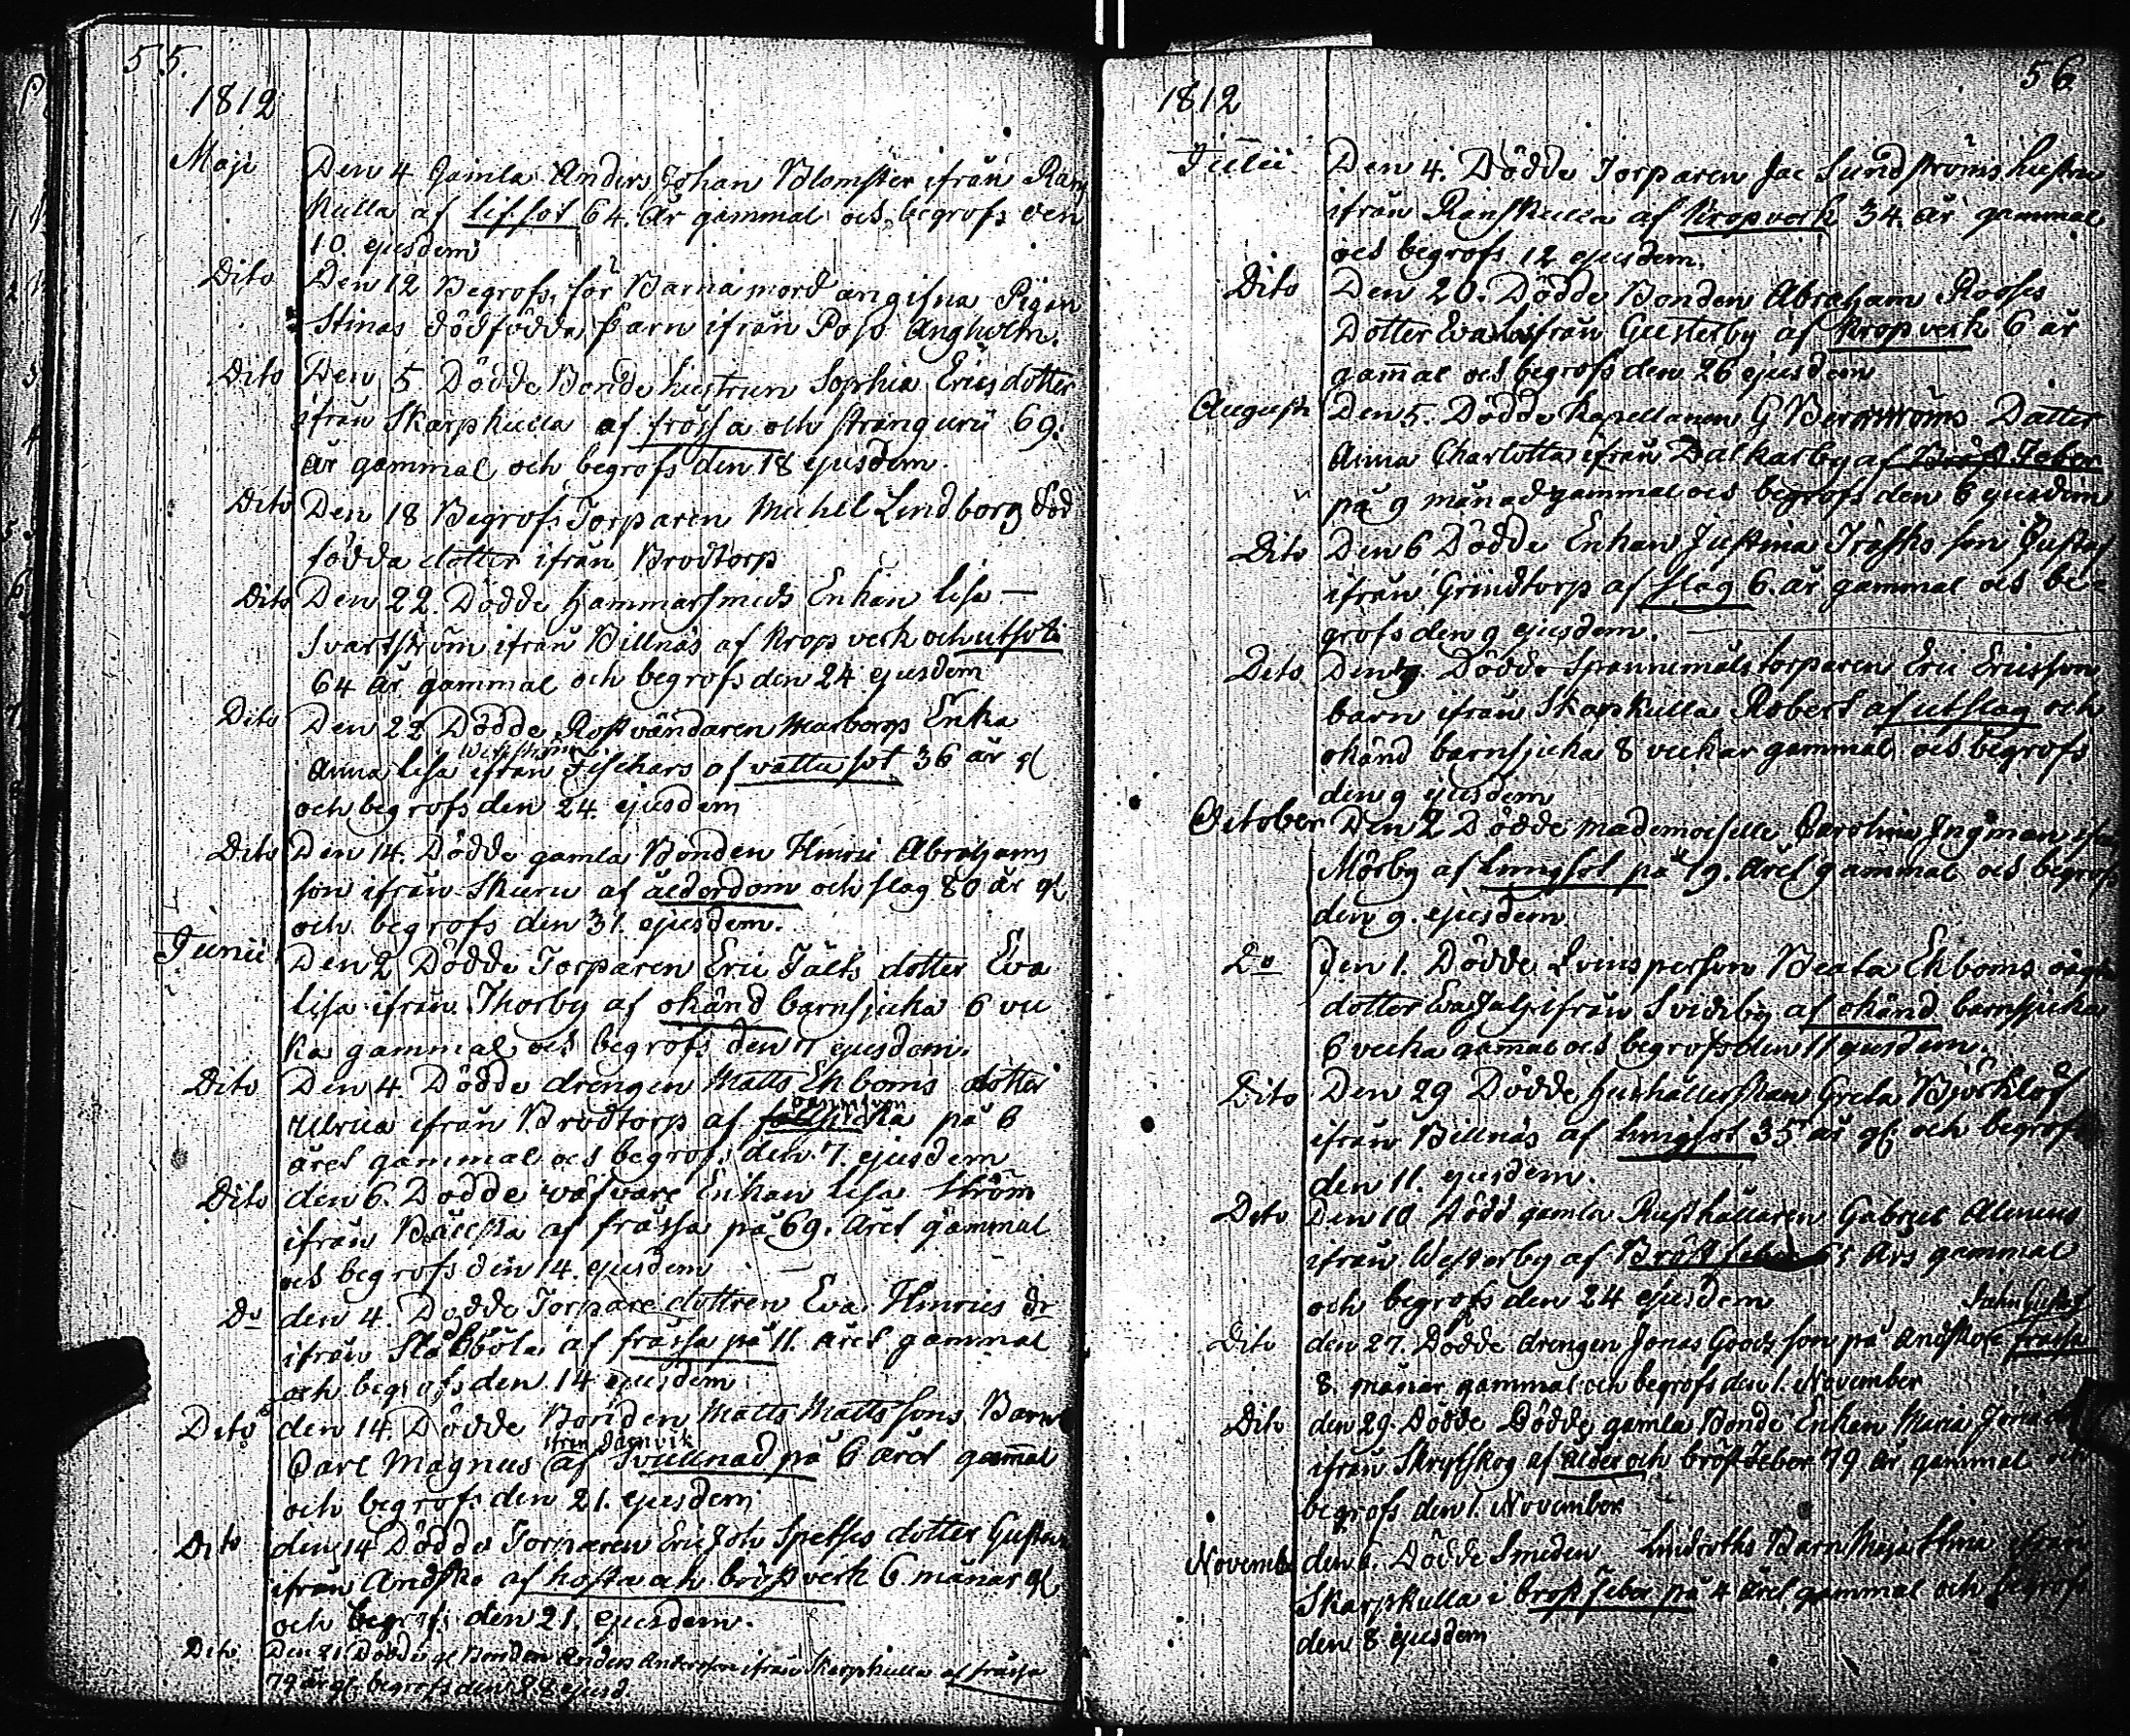 55.
1812
Maji Den 4 Gamla Anders Johan Blomster ifrån Rans
kulla af lifsot 64. år gammal och begrofs den
10. ejusdem
Dito Den 12 Begrofs, för Barnamord angifna Pigan
Stinas dödfödda barn ifrån Påjo Ängholm.
Dito Den 5 Dödde Bonde hustrun Sophia Ericsdotter
ifrån Skarpkulla af frossa och stranguri 69.
år gammal och begrofs den 18 ejusdem.
Dito Den 18 Begrofs Torparen Michel Lindborg död
födda dotter ifrån Brodtorp
Dito Den 22. Dödde Hammarsmeds Enkan Lisa —
Svartström ifrån Billnäs af kropverk och utsot
64 år gammal och begrofs den 24 ejusdem
Dito Den 22 Dödde Rostvändaren Marborgs Enka
Anna Lisa ifrån Fiskars af vattusot 36 år gl
och begrofs den 24. ejusdem
Dito Den 14. Dödde gamla Bonden Hinric Abrahams
son ifrån Skuru af ålderdom och slag 80 år gl
och begrofs den 31. ejusdem.
Junii Den 2 Dödde Torparen Eric Fälts dotter Eva
Lisa ifrån Thorby af okänd barnsjuka 6 vec
kas gammal och begrofs den 11 ejusdem.
Dito Den 4. Dödde drengen Matts Ekboms dotter
Ulrica ifrån Brodtorp af på 6
året gammal och begrofs den 7. ejusdem
Dito den 6. Dödde Enkan Lisa Ström
ifrån Bällsta af frassa på 69. året gammal
och begrofs den 14. ejusdem
Do den 4. Dödde Torpare dottren Eva Hinrics dr
ifrån Släkböla af frassa på 11. året gammal
och begrofs den 14 ejusdem
Dito den 14. Dödde Bonden Matts Mattssons Barn
ifrån Dagnvik
Carl Magnus af Svullnad på 6 året gammal
och begrofs den 21. ejusdem
Dito den 14 Dödde Torparen Eric Joh dotter
ifrån Andsko af hosta och bröstverk 6 månar gl
och begrofs den 21. ejusdem.
Dito Den 21 Dödde gl Bonden Anders Andersson ifrån Skarpkulla af frassa
79 år gl. begrofs den 28 ejusd
56
1812
Julii Den 4. Dödde Torparen Jac Lundströms hustru
ifrån Ranskulla af kropverk 34. år gammal
och begrofs 12 ejusdem.
Dito Den 20. Dödde Bonden Abraham Rosses
Dotter Eva ifrån Gusterby af kropverk 6 år
gammal och begrofs den 26 ejusdem
Augusti Den 5. Dödde Kapellanen G Bergströms Dotter
Anna Charlotta ifrån Dalkarby af Bröst Feber
på 9 månad gammal och begrofs den 6 ejusdem
Dito Den 6 Dödde Enkan Justina Träsks son Gustaf
ifrån Grindtorp af slag 6. år gammal och be=
grofs den 9 ejusdem.
Dito Den 9. Dödde Spannemåls torparen Eric Ericsson
barn ifrån Skarpkulla Robert af utslag och
okänd barnsjuka 8 veckar gammal och begrofs
den 9 ejusdem
October Den 2 Dödde Mademoiselle Carolina Ingman ifrån
Mörby af lungsot på 19. året gammal och begrofs
den 9. ejusdem
Do Den 1. Dödde Qvinsperson Beata Ekboms oägta
dotter ifrån Svidiby af okänd barnsjuka
6 vecka gammal och begrofs den 11 ejusdem.
Dito Den 29 Dödde Hushållerskan Greta Björklöf
ifrån Billnäs af lungsot 35 år gl och begrofs
den 11. ejusdem.
Dito Den 10 Dödd gamla Rusthållaren Gabriel Alenius
ifrån Westerby af Bröst feber 65 års gammal
och begrofs den 24 ejusdem
John Gustaf
Dito den 27. Dödde drengen Jonas Goods son på Andsko frassa
8. månar gammal och begrofs den 1. November
Dito den 29. Dödde Dödde gamla Bonde Enkan Maria
ifrån Skrytskog af ålder och bröstfeber 79 år gammal och
begrofs den 1. November
Novemb den 6. Dödde Smeden Lindroths Barn Maja Stina ifrån
Skarpkulla i bröst feber på 4 året gammal och begrofs
den 8 ejusdem